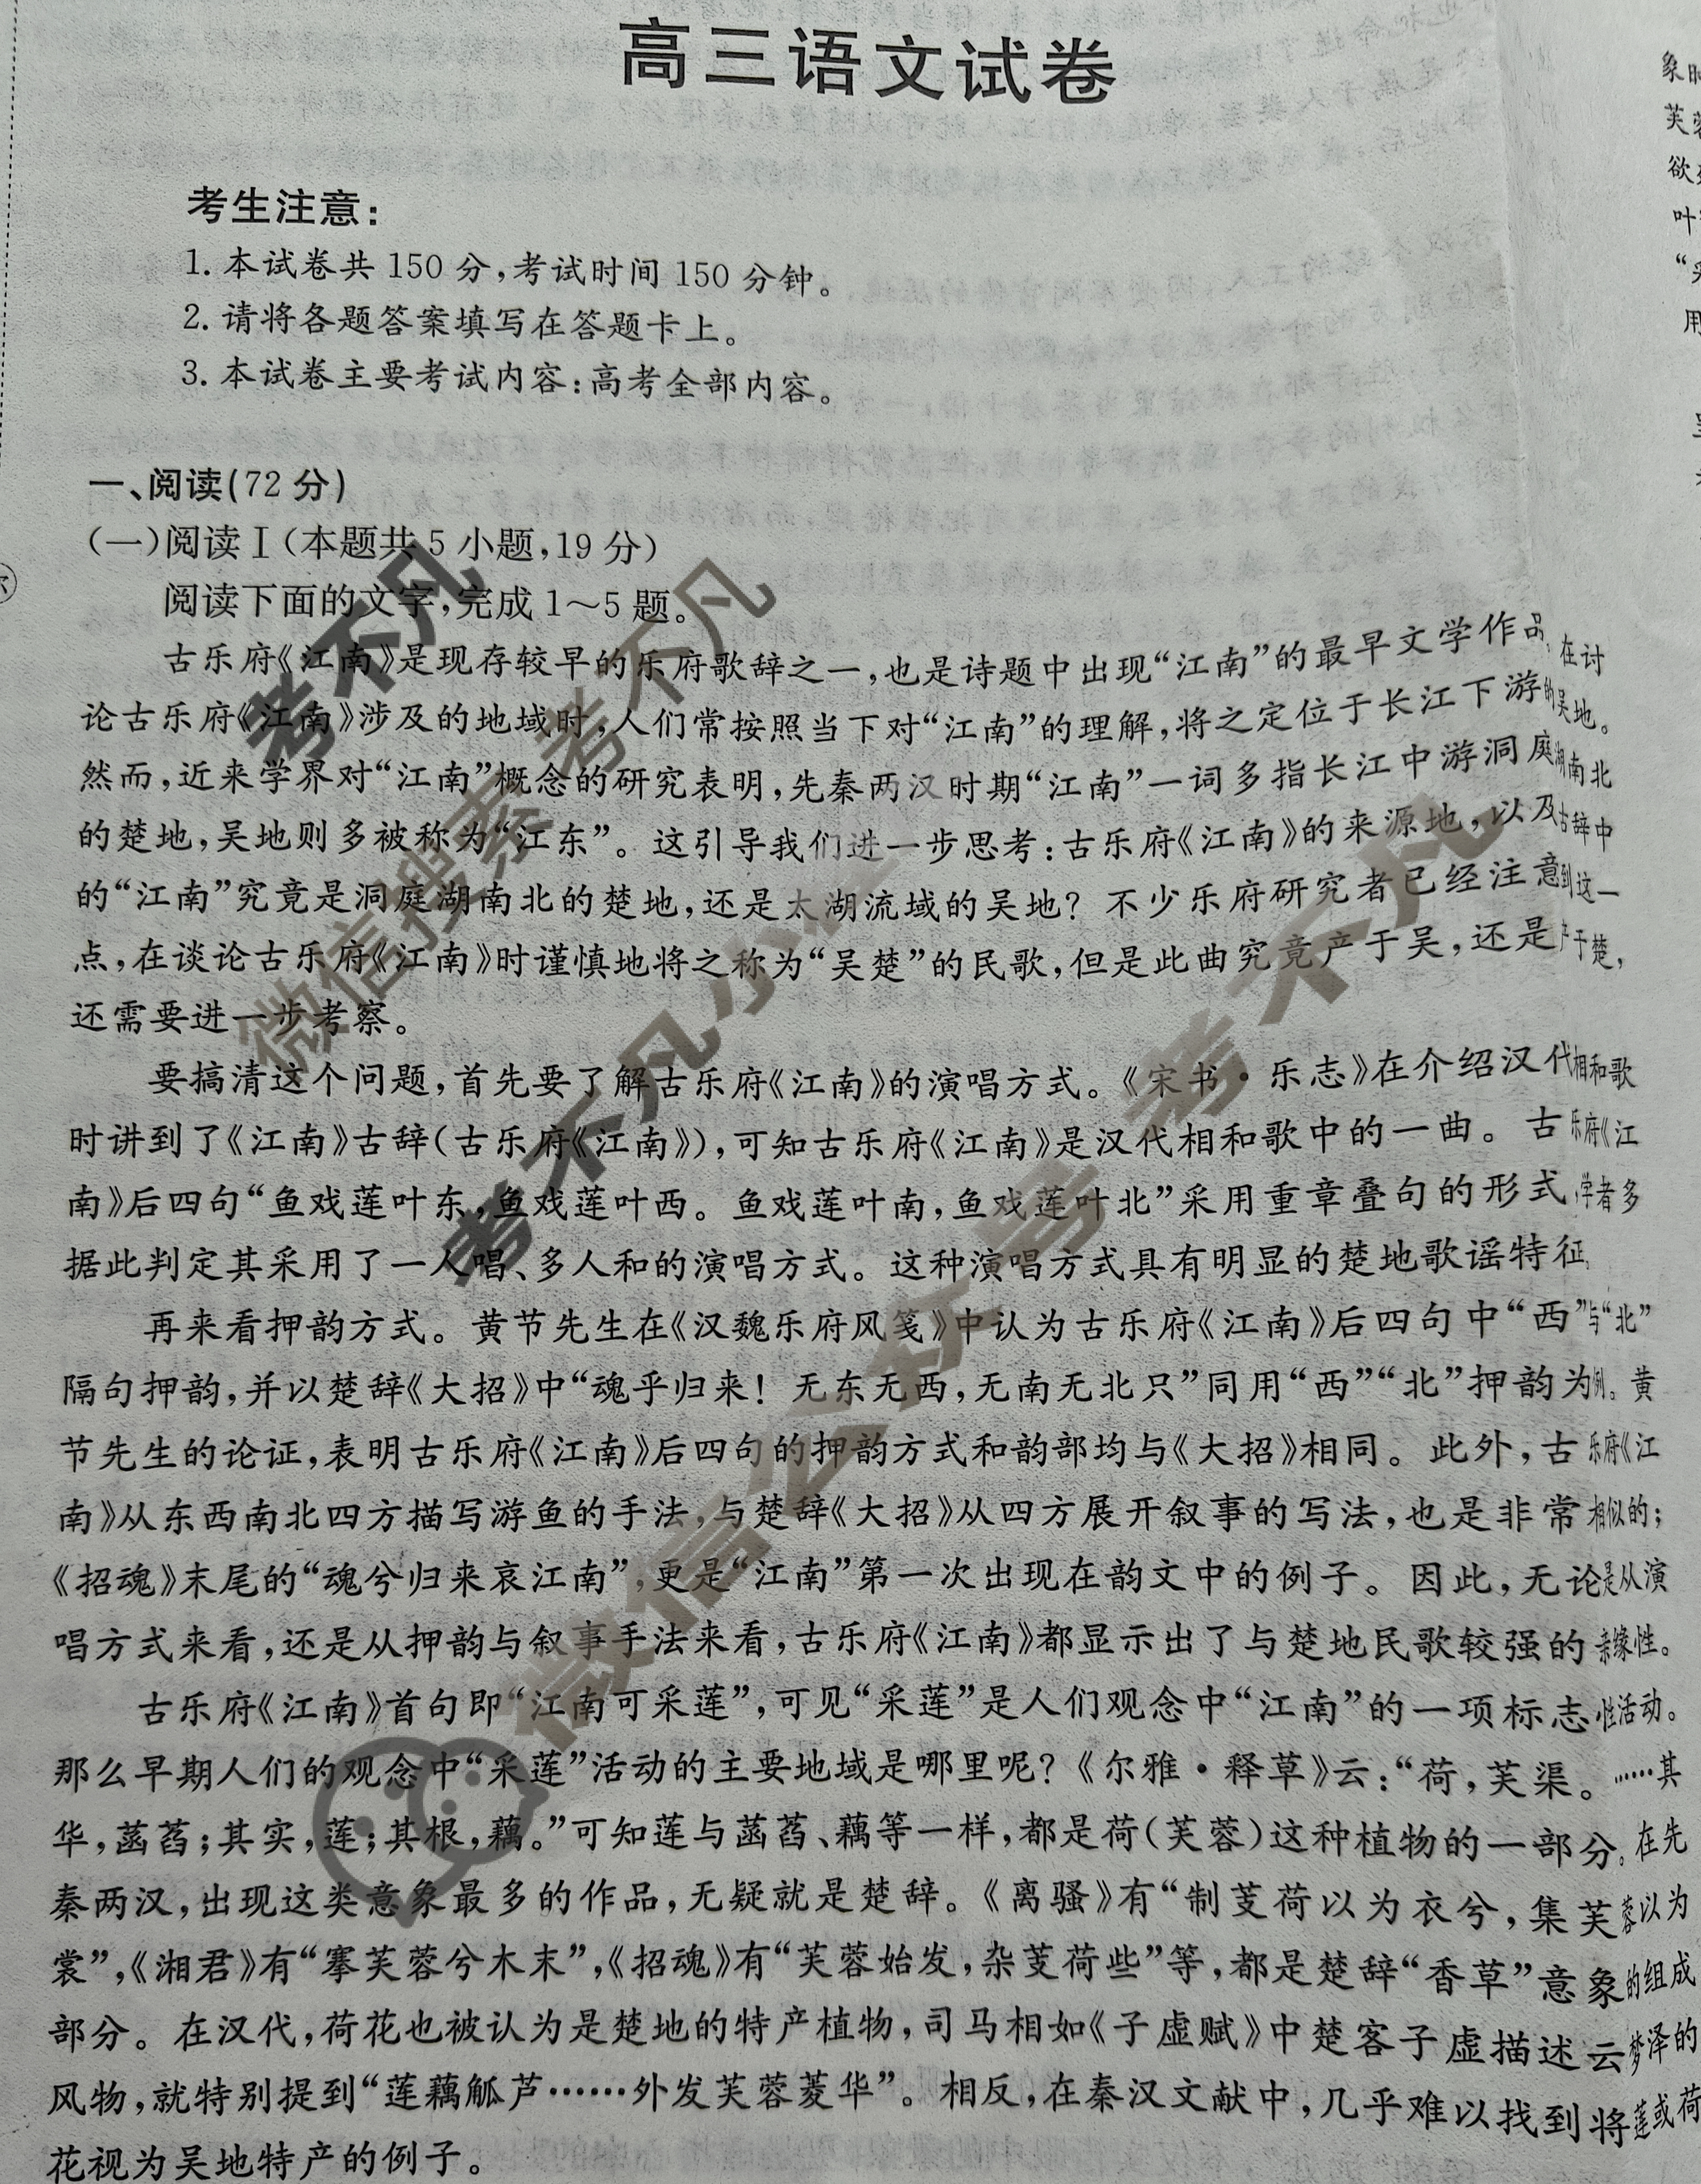 高三语文试卷
考生注意：
1. 本试卷共 150 分，考试时间 150 分钟。
2. 请将各题答案填写在答题卡上。
3. 本试卷主要考试内容：高考全部内容。
一、阅读(72 分)
(一)阅读Ⅰ(本题共 5 小题，19 分)
阅读下面的文字，完成 1～5 题。
古乐府《江南》是现存较早的乐府歌辞之一，也是诗题中出现“江南”的最早文学作品。在讨
论古乐府《江南》涉及的地域时，人们常按照当下对“江南”的理解，将之定位于长江下游的吴地。
然而，近来学界对“江南”概念的研究表明，先秦两汉时期“江南”一词多指长江中游洞庭湖南北
的楚地，吴地则多被称为“江东”。这引导我们进一步思考：古乐府《江南》的来源地，以及古辞中
的“江南”究竟是洞庭湖南北的楚地，还是太湖流域的吴地？不少乐府研究者已经注意到这一
点，在谈论古乐府《江南》时谨慎地将之称为“吴楚”的民歌，但是此曲究竟产于吴，还是产于楚，
还需要进一步考察。
要搞清这个问题，首先要了解古乐府《江南》的演唱方式。《宋书·乐志》在介绍汉代相和歌
时讲到了《江南》古辞(古乐府《江南》)，可知古乐府《江南》是汉代相和歌中的一曲。古乐府《江
南》后四句“鱼戏莲叶东，鱼戏莲叶西。鱼戏莲叶南，鱼戏莲叶北”采用重章叠句的形式，学者多
据此判定其采用了一人唱、多人和的演唱方式。这种演唱方式具有明显的楚地歌谣特征。
再来看押韵方式。黄节先生在《汉魏乐府风笺》中认为古乐府《江南》后四句中“西”与“北”
隔句押韵，并以楚辞《大招》中“魂乎归来！无东无西，无南无北只”同用“西”“北”押韵为例。黄
节先生的论证，表明古乐府《江南》后四句的押韵方式和韵部均与《大招》相同。此外，古乐府《江
南》从东西南北四方描写游鱼的手法，与楚辞《大招》从四方展开叙事的写法，也是非常相似的；
《招魂》末尾的“魂兮归来哀江南”，更是“江南”第一次出现在韵文中的例子。因此，无论是从演
唱方式来看，还是从押韵与叙事手法来看，古乐府《江南》都显示出了与楚地民歌较强的亲缘性。
古乐府《江南》首句即“江南可采莲”，可见“采莲”是人们观念中“江南”的一项标志性活动。
那么早期人们的观念中“采莲”活动的主要地域是哪里呢？《尔雅·释草》云：“荷，芙渠。……其
华，菡萏；其实，莲；其根，藕。”可知莲与菡萏、藕等一样，都是荷(芙蓉)这种植物的一部分。在先
秦两汉，出现这类意象最多的作品，无疑就是楚辞。《离骚》有“制芰荷以为衣兮，集芙蓉以为
裳”，《湘君》有“搴芙蓉兮木末”，《招魂》有“芙蓉始发，杂芰荷些”等，都是楚辞“香草”意象的组成
部分。在汉代，荷花也被认为是楚地的特产植物，司马相如《子虚赋》中楚客子虚描述云梦泽的
风物，就特别提到“莲藕觚芦……外发芙蓉菱华”。相反，在秦汉文献中，几乎难以找到将莲或荷
花视为吴地特产的例子。
考不凡
微信搜索 考不凡
考不凡小
微信公众号 考不凡